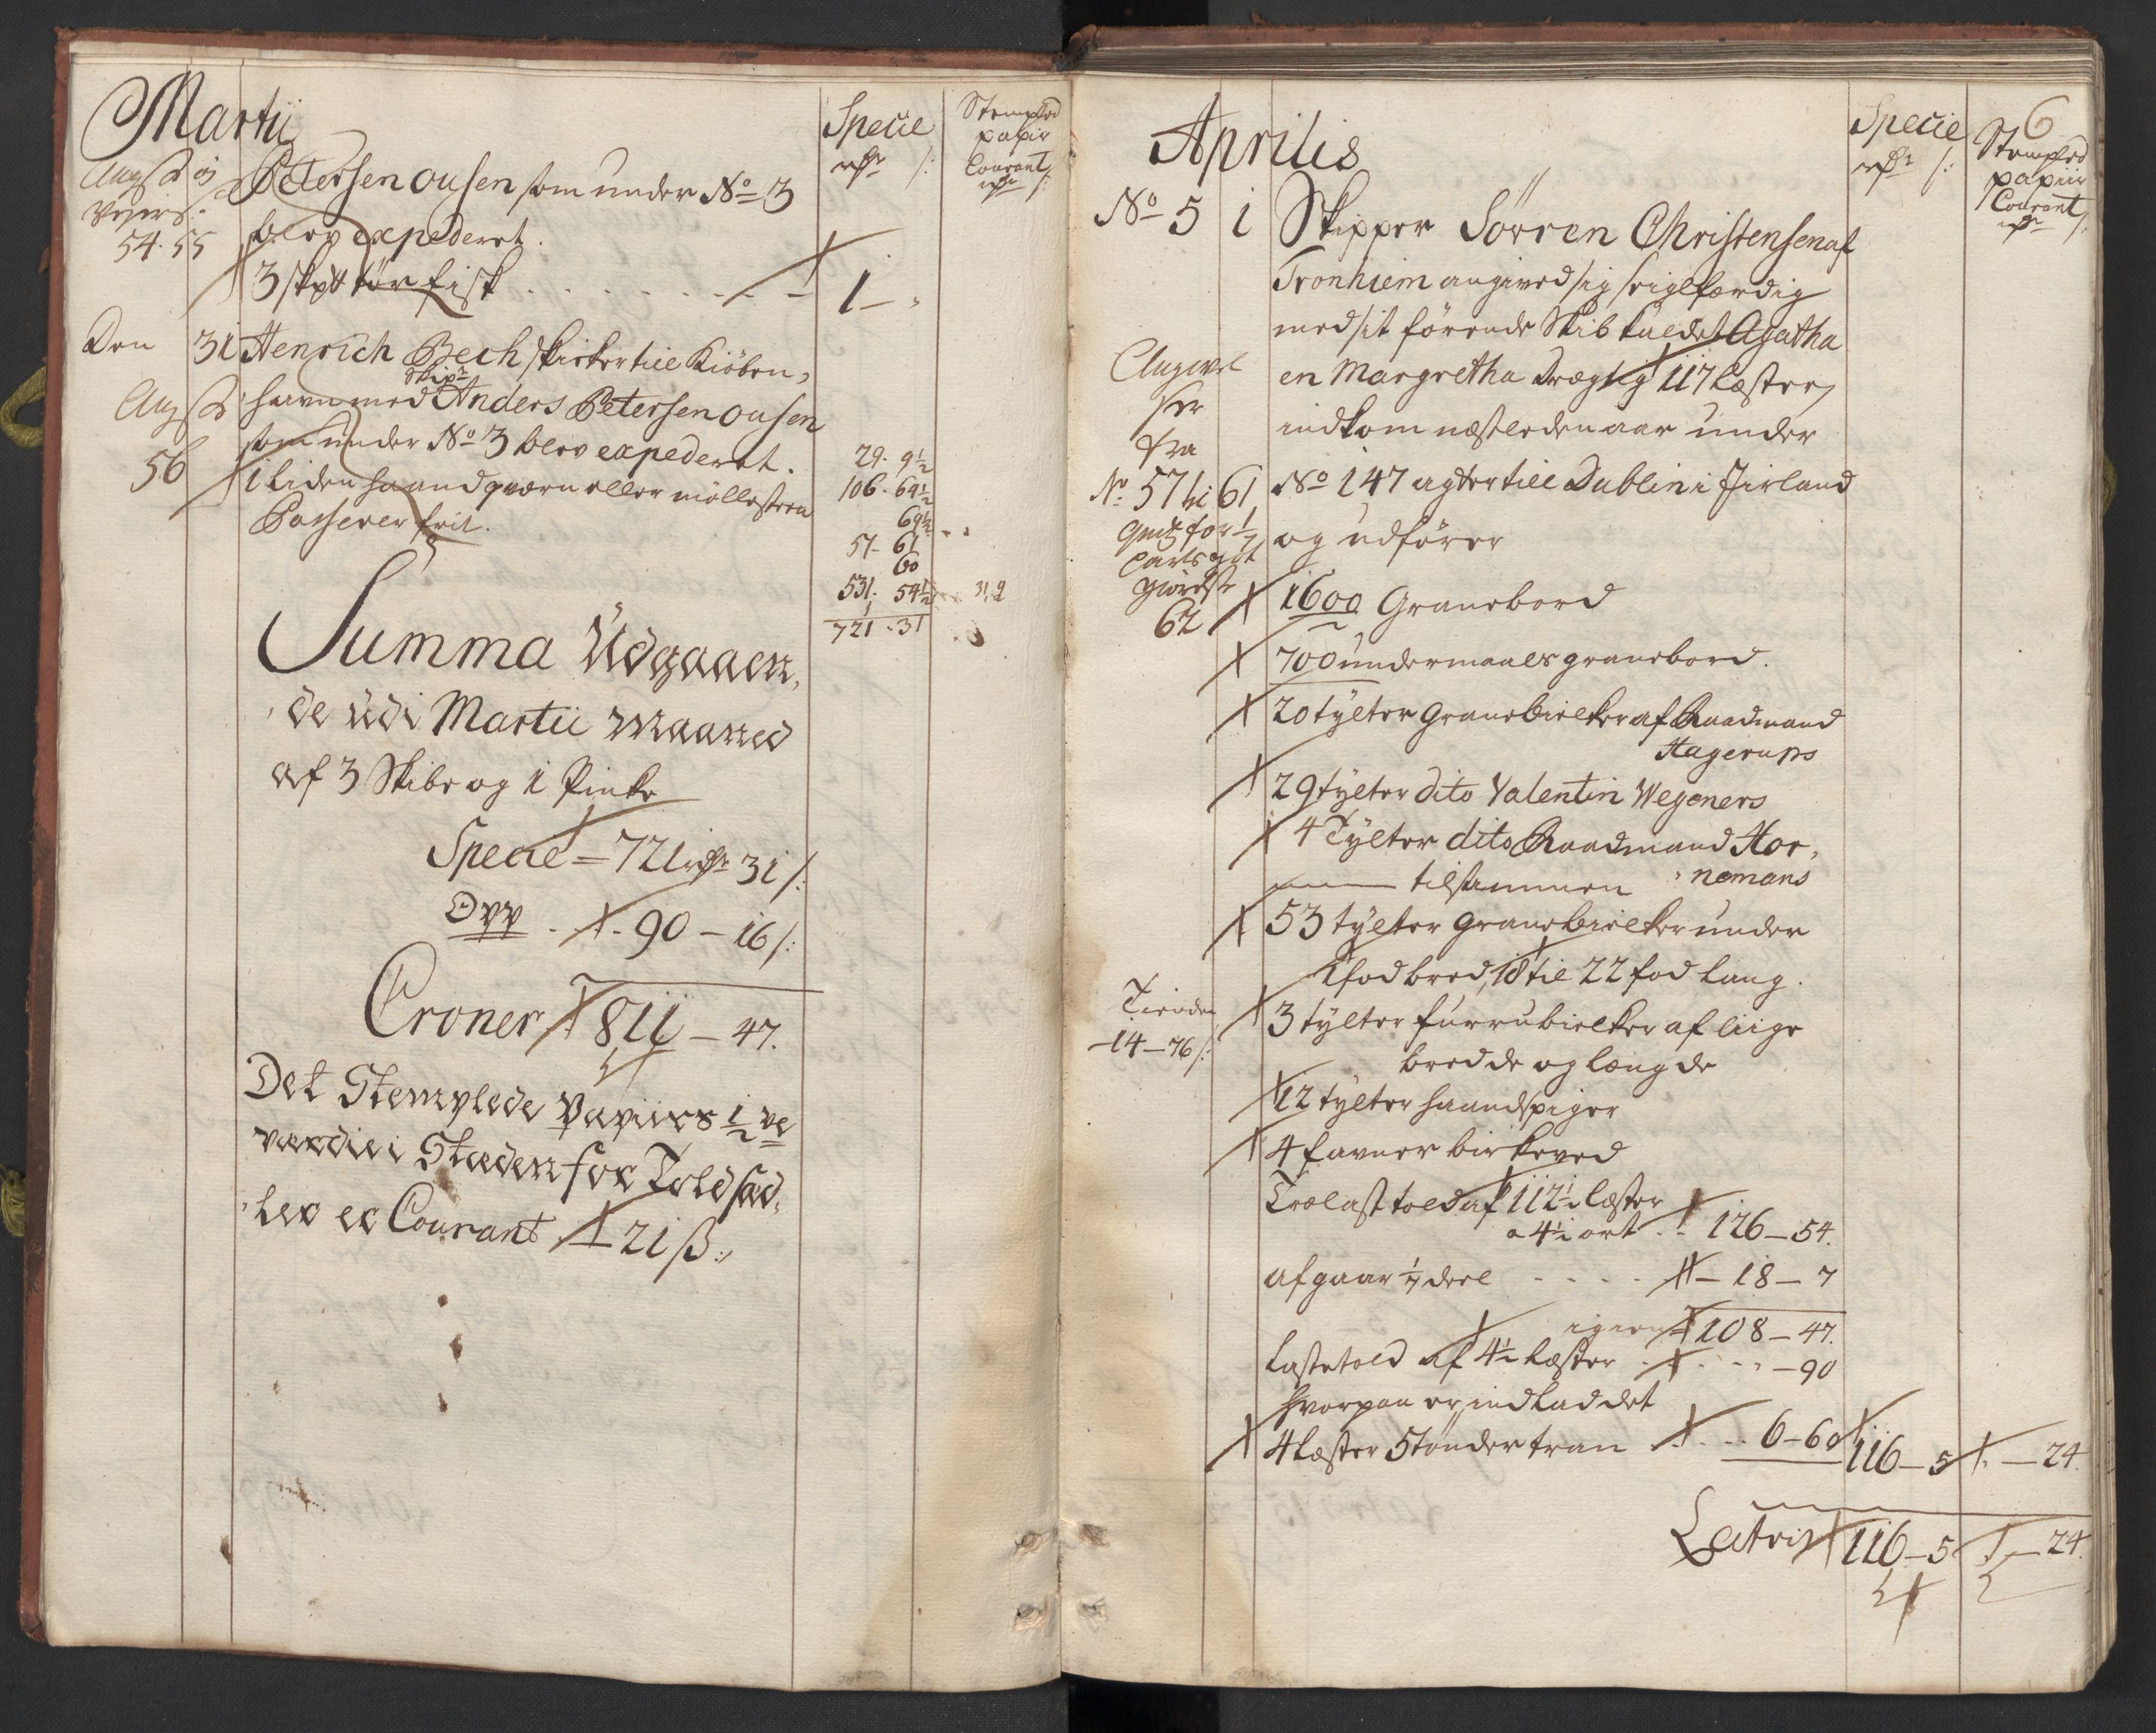 Martii
Specie
rdr /:
Stempled
papir
Courant
rdr /:
Angsd og
Vejers.
54. 55
Petersen ousen som under No 3
blev expederet.
3 skptt tör fisk . . . . . . . 1 –
Den 31 Henrich Bech skicker till Kiöben,
havn med Skipr Anders Petersen ousen
som under No 3 blev expederet.
56
1 liden haandqværn eller möllesteen
Passerer frit.
29. 9½
106. 69½
69½
57. 61
60
531. 54½
1
721. 31
Summa Udgaaen,
de udi Martii Maaned
af 3 Skibe og 1 Pinke
Specie = 721 rdr 31 /:
Opp . . 90 – 16 /:
Croner 811 – 47.
Det Stemplede Papiirs ½ ve
værdie i Steden for Told sed,
ler er Courant – 21 ß.
6
Aprilis
Specie
rdr /:
Stempled
papiir
Courant
rdr /:
No 5 1 Skipper Sörren Christensen af
Tronhiem angived sig seigelfærdig
med sit förende Skib kaldet Agatha
en Margretha drægtig 117 læster,
indkom næstleden aar under
No 147 agter till Dublin i Jirland
og udförer
Angivel
ser
fra
No 57 til 61
62
1600 Granebord
700 undermaals granebord.
20 tylter granebielker af Raadmand
Hagerups
29 tylter dito Valentin Wegeners
4 Tylter dito Raadmand Hor,
nemans
tilsammen
53 tylter granebielker under
1 fod bred, 18 til 22 fod lang.
Tiende
– 14 – 76 /:
3 tylter furrubielker af liige
bredde og længde
12 tylter haandspiger
4 favner birkeved
Trelast told af 112½ læster
a 4½ ort . . 126 – 54.
afgaar 1/7 deel . . . . – 18 – 7
igien 108 – 47.
Lastetold af 4½ læster . . . . – 90
hvorpaa er indladdet
4 læster 5 tönder tran . . . 6 – 60 116 – 5 – 24.
Lateris 116 – 5 – 24.